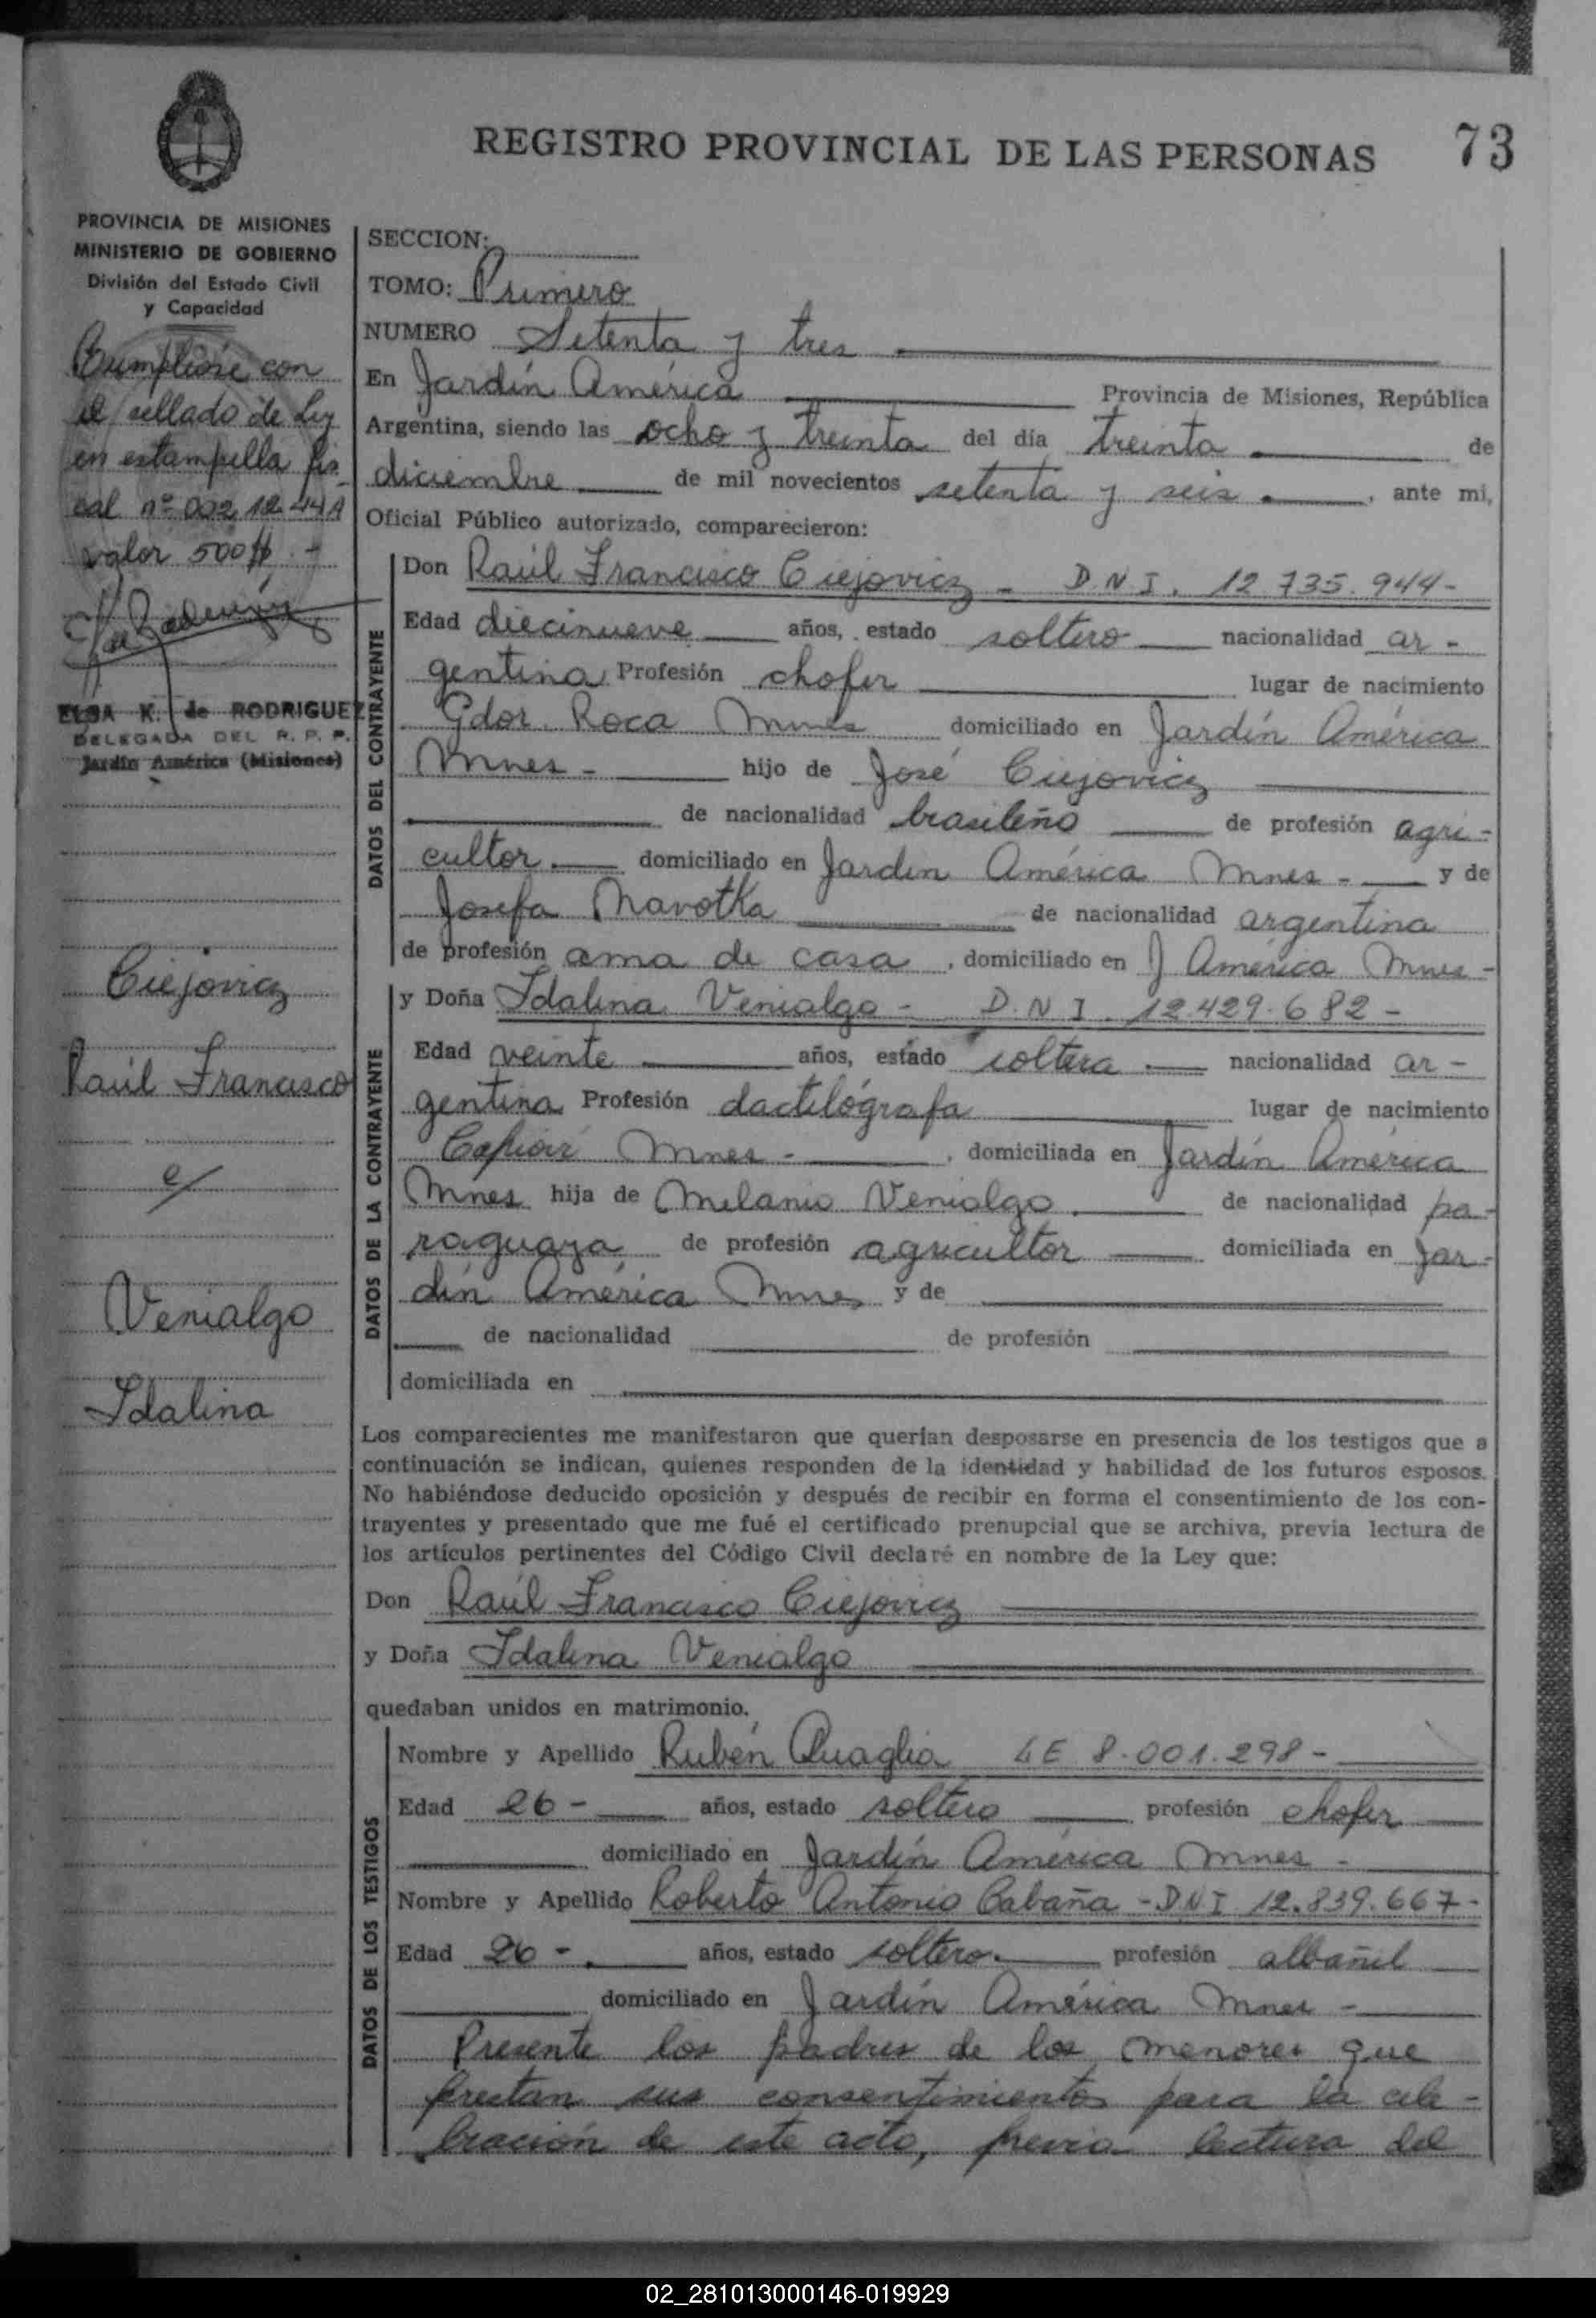 REGISTRO PROVINCIAL DE LAS PERSONAS 73
PROVINCIA DE MISIONES
MINISTERIO DE GOBIERNO
División del Estado Civil
y Capacidad
Cumplióse con
el sellado de Ley
en estampilla fis-
cal nº 002 12 44 A
valor 500 $ -
ELSA K. de RODRIGUEZ
DELEGADA DEL R. P. P.
Jardín América (Misiones)
Ciejovicz
Raúl Francisco
c/
Venialgo
Idalina
SECCION:
TOMO: Primero
NUMERO Setenta y tres
En Jardín América Provincia de Misiones, República
Argentina, siendo las ocho y treinta del día treinta de
diciembre de mil novecientos setenta y seis , ante mi,
Oficial Público autorizado, comparecieron:
DATOS DEL CONTRAYENTE
Don Raúl Francisco Ciejovicz - D.N.I. 12.735.944-
Edad diecinueve años, estado soltero nacionalidad ar-
gentina Profesión chofer lugar de nacimiento
Gdor. Roca Mnes domiciliado en Jardín América
Mnes - hijo de José Ciejovicz
de nacionalidad brasileño de profesión agri-
cultor domiciliado en Jardín América Mnes - y de
Josefa Marotka de nacionalidad argentina
de profesión ama de casa , domiciliado en J América Mnes -
DATOS DE LA CONTRAYENTE
y Doña Idalina Venialgo - D.N.I. 12.429.682 -
Edad veinte años, estado soltera nacionalidad ar-
gentina Profesión dactilógrafa lugar de nacimiento
Capioví Mnes - , domiciliada en Jardín América
Mnes hija de Melanio Venialgo de nacionalidad pa-
raguaya de profesión agricultor domiciliada en Jar-
dín América Mnes y de
de nacionalidad de profesión
domiciliada en
Los comparecientes me manifestaron que querían desposarse en presencia de los testigos que a
continuación se indican, quienes responden de la identidad y habilidad de los futuros esposos.
No habiéndose deducido oposición y después de recibir en forma el consentimiento de los con-
trayentes y presentado que me fué el certificado prenupcial que se archiva, previa lectura de
los artículos pertinentes del Código Civil declaré en nombre de la Ley que:
Don Raúl Francisco Ciejovicz
y Doña Idalina Venialgo
quedaban unidos en matrimonio.
DATOS DE LOS TESTIGOS
Nombre y Apellido Rubén Quaglia LE 8.001.298 -
Edad 26 - años, estado soltero profesión chofer
domiciliado en Jardín América Mnes -
Nombre y Apellido Roberto Antonio Cabaña - D.N.I 12.839.667 -
Edad 26 - años, estado soltero. profesión albañil
domiciliado en Jardín América Mnes -
Presente los padres de los menores que
prestan sus consentimientos para la cele-
bración de este acto, previa lectura del
02_281013000146-019929